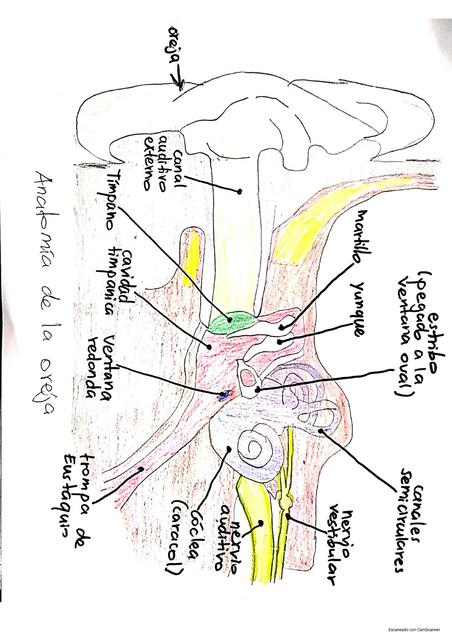 oreja
canal
auditivo
externo
Tímpano
cavidad
timpánica
ventana
redonda
trompa de
Eustaquio
martillo
yunque
estribo
(pegado a la
ventana oval)
canales
semicirculares
nervio
vestibular
nervio
auditivo
cóclea
(caracol)
Anatomía de la oreja
Escaneado con CamScanner